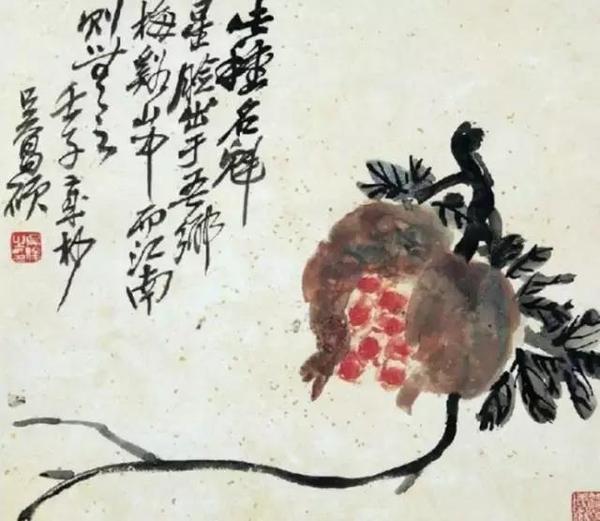 此種名魁
星臉出于吾鄉
梅谿山中而江南
則無之
壬子杪
吳昌碩